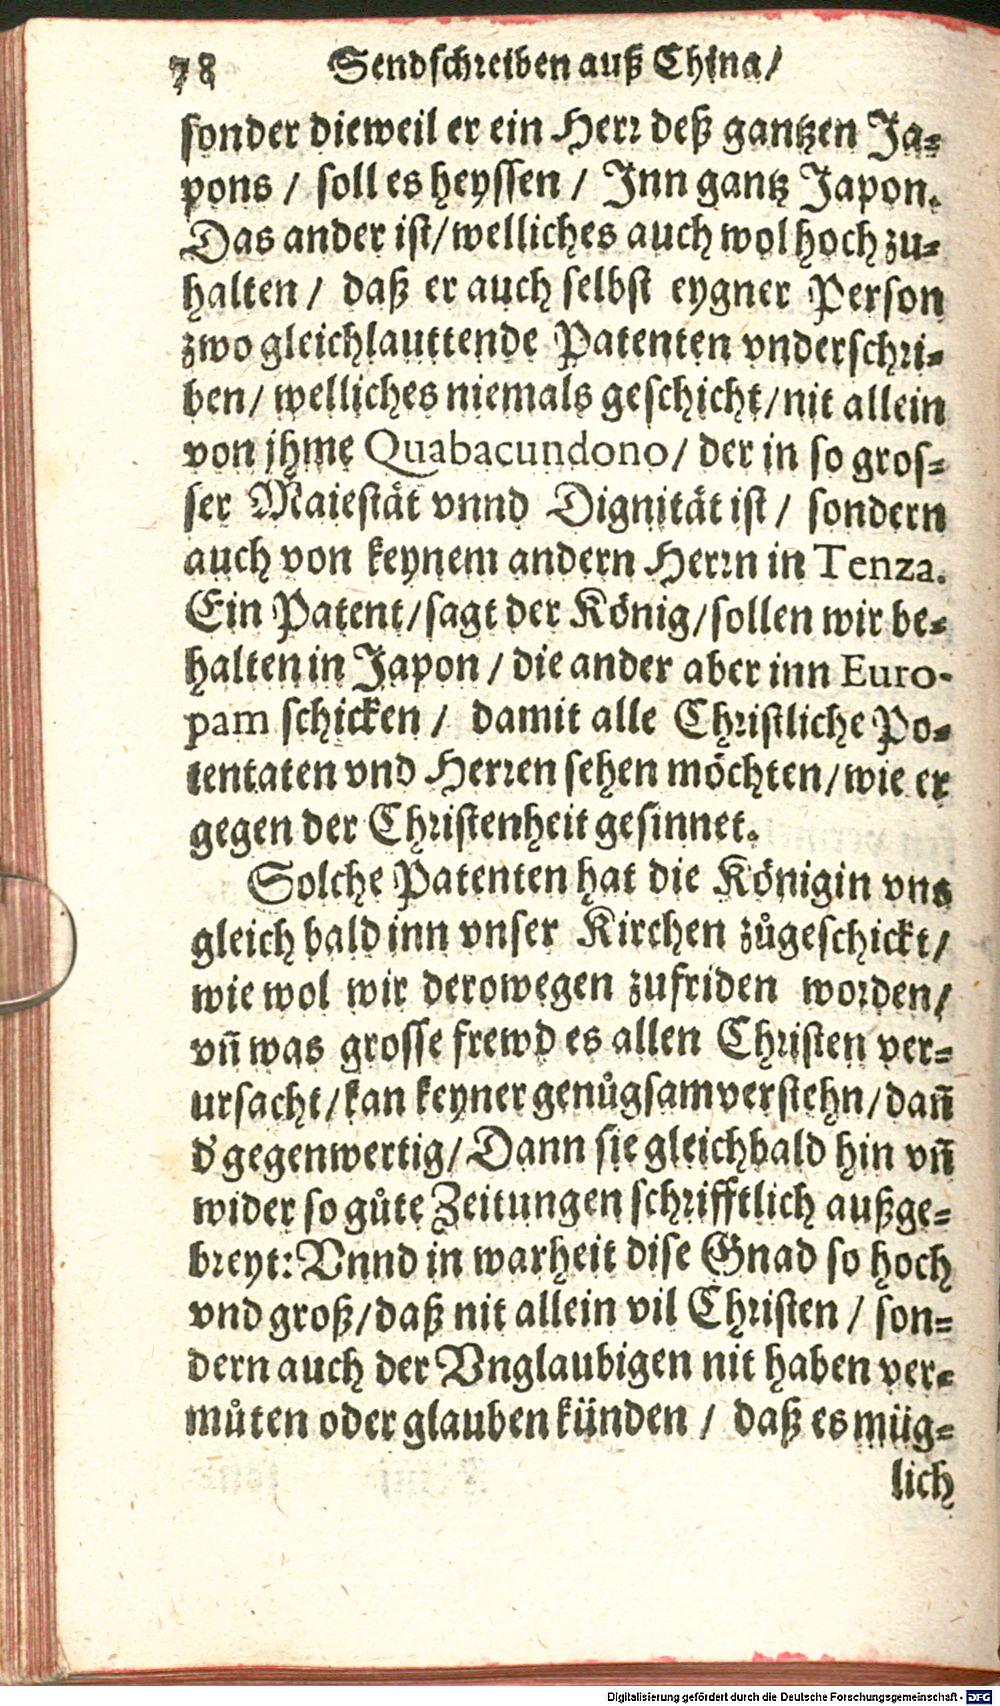 78 Sendschreiben auß China/
sonder dieweil er ein Herr deß gantzen Ja-
pons / soll es heyssen / Inn gantz Japon.
Das ander ist/welliches auch wol hoch zu-
halten / daß er auch selbst eygner Person
zwo gleichlauttende Patenten vnderschri-
ben/ welliches niemals geschicht/nit allein
von jhme Quabacundono/ der in so gros-
ser Maiestät vnnd Dignität ist / sondern
auch von keynem andern Herrn in Tenza.
Ein Patent/sagt der König/sollen wir be-
halten in Japon / die ander aber inn Euro-
pam schicken / damit alle Christliche Po-
tentaten vnd Herren sehen möchten/wie er
gegen der Christenheit gesinnet.
Solche Patenten hat die Königin vns
gleich bald inn vnser Kirchen zůgeschickt/
wie wol wir derowegen zufriden worden/
vñ was grosse frewd es allen Christen ver-
ursacht/kan keyner genůgsam verstehn/dañ
d' gegenwertig/ Dann sie gleichbald hin vñ
wider so gůte Zeitungen schrifftlich außge-
breyt: Vnnd in warheit dise Gnad so hoch
vnd groß/daß nit allein vil Christen / son-
dern auch der Vnglaubigen nit haben ver-
můten oder glauben künden / daß es müg-
lich
Digitalisierung gefördert durch die Deutsche Forschungsgemeinschaft - DFG